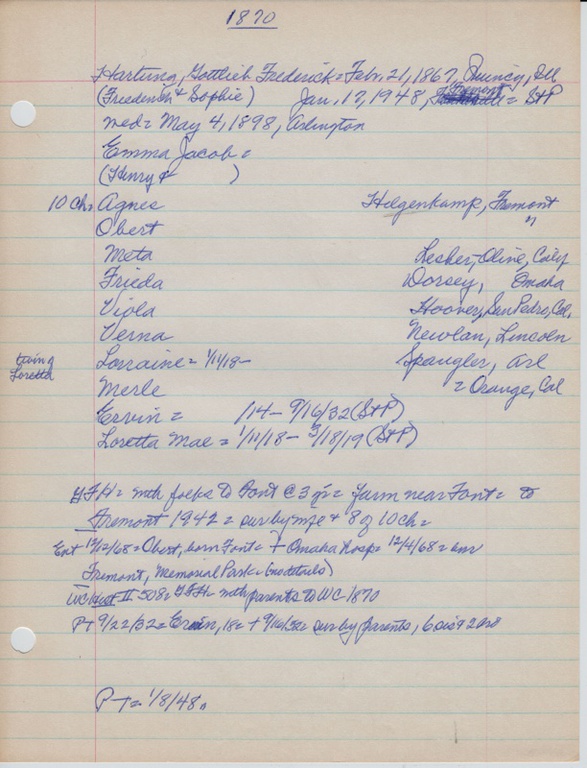 1870
Hartung, Gottlieb Frederick = Feb. 21, 1867, Quincy, Ill
(Frederick & Sophie) Jan. 17, 1948, Fremont = StP
med = May 4, 1898, Arlington
Emma Jacob =
(Henry & )
10 Ch = Agnes Hilgenkamp, Fremont
Obert "
Meta Lesher, Olive, Calif
Frieda Dorsey, Omaha
Viola Hoover, San Pedro, Cal,
Verna Newlan, Lincoln
twin g Loretta Lorraine = 1/11/18 - Spangler, Arl
Merle = Orange, Cal
Ervin = /14 - 9/16/32 (StP)
Loretta Mae = 1/11/18 - 3/18/19 (StP)
GFH = with folks to Font @ 3 yr = farm near Font = to
Fremont 1942 = sur by wife & 8 of 10 ch =
Ent 12/12/68 = Obert, born Font = + Omaha Hosp = 12/4/68 =
Fremont, Memorial Park = (no details)
WC Hist II 508 = GFH = with parents to WC 1870
PT 9/22/32 = Ervin, 18 = + 9/16/32 = sur by parents, 6 sis & 2 bro
PT = 1/8/48